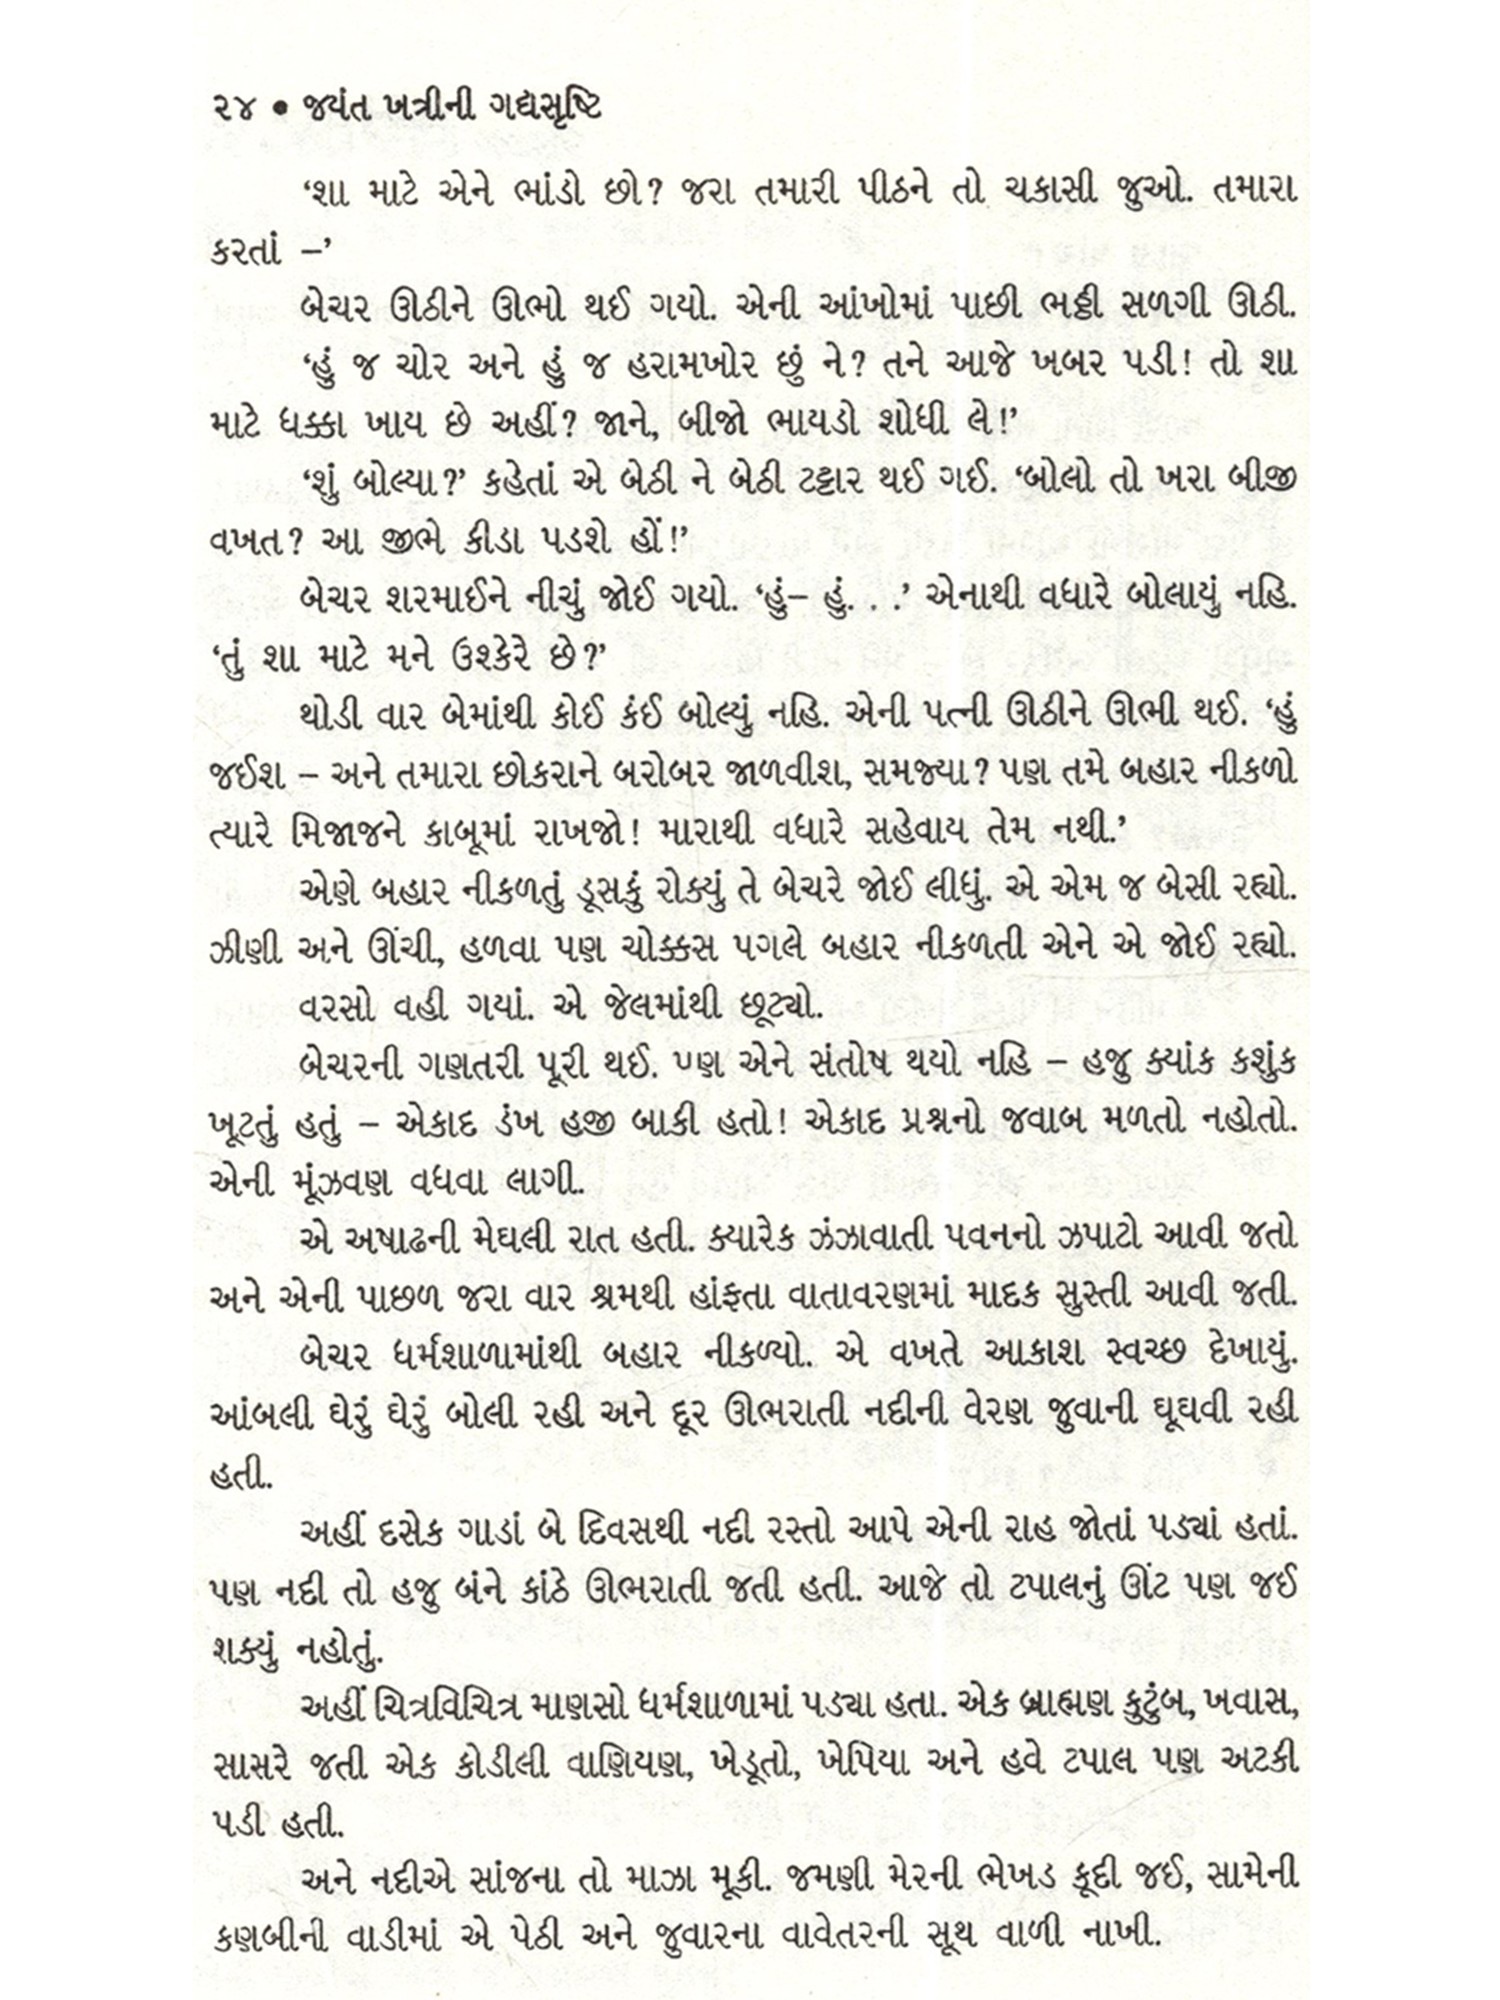 ૨૪ ● જયંત ખત્રીની ગદ્યસૃષ્ટિ
‘શા માટે એને ભાંડો છો? જરા તમારી પીઠને તો ચકાસી જુઓ. તમારા
કરતાં –’
બેચર ઊઠીને ઊભો થઈ ગયો. એની આંખોમાં પાછી ભઠ્ઠી સળગી ઊઠી.
‘હું જ ચોર અને હું જ હરામખોર છું ને? તને આજે ખબર પડી! તો શા
માટે ધક્કા ખાય છે અહીં? જાને, બીજો ભાયડો શોધી લે!’
‘શું બોલ્યા?’ કહેતાં એ બેઠી ને બેઠી ટટ્ટાર થઈ ગઈ. ‘બોલો તો ખરા બીજી
વખત? આ જીભે કીડા પડશે હોં!’
બેચર શરમાઈને નીચું જોઈ ગયો. ‘હું– હું. . .’ એનાથી વધારે બોલાયું નહિ.
‘તું શા માટે મને ઉશ્કેરે છે?’
થોડી વાર બેમાંથી કોઈ કંઈ બોલ્યું નહિ. એની પત્ની ઊઠીને ઊભી થઈ. ‘હું
જઈશ – અને તમારા છોકરાને બરોબર જાળવીશ, સમજ્યા? પણ તમે બહાર નીકળો
ત્યારે મિજાજને કાબૂમાં રાખજો! મારાથી વધારે સહેવાય તેમ નથી.’
એણે બહાર નીકળતું ડૂસકું રોક્યું તે બેચરે જોઈ લીધું. એ એમ જ બેસી રહ્યો.
ઝીણી અને ઊંચી, હળવા પણ ચોક્કસ પગલે બહાર નીકળતી એને એ જોઈ રહ્યો.
વરસો વહી ગયાં. એ જેલમાંથી છૂટ્યો.
બેચરની ગણતરી પૂરી થઈ. પણ એને સંતોષ થયો નહિ – હજુ ક્યાંક કશુંક
ખૂટતું હતું – એકાદ ડંખ હજી બાકી હતો! એકાદ પ્રશ્નનો જવાબ મળતો નહોતો.
એની મૂંઝવણ વધવા લાગી.
એ અષાઢની મેઘલી રાત હતી. ક્યારેક ઝંઝાવાતી પવનનો ઝપાટો આવી જતો
અને એની પાછળ જરા વાર શ્રમથી હાંફતા વાતાવરણમાં માદક સુસ્તી આવી જતી.
બેચર ધર્મશાળામાંથી બહાર નીકળ્યો. એ વખતે આકાશ સ્વચ્છ દેખાયું.
આંબલી ઘેરું ઘેરું બોલી રહી અને દૂર ઊભરાતી નદીની વેરણ જુવાની ઘૂઘવી રહી
હતી.
અહીં દસેક ગાડાં બે દિવસથી નદી રસ્તો આપે એની રાહ જોતાં પડ્યાં હતાં.
પણ નદી તો હજુ બંને કાંઠે ઊભરાતી જતી હતી. આજે તો ટપાલનું ઊંટ પણ જઈ
શક્યું નહોતું.
અહીં ચિત્રવિચિત્ર માણસો ધર્મશાળામાં પડ્યા હતા. એક બ્રાહ્મણ કુટુંબ, ખવાસ,
સાસરે જતી એક કોડીલી વાણિયણ, ખેડૂતો, ખેપિયા અને હવે ટપાલ પણ અટકી
પડી હતી.
અને નદીએ સાંજના તો માઝા મૂકી. જમણી મેરની ભેખડ કૂદી જઈ, સામેની
કણબીની વાડીમાં એ પેઠી અને જુવારના વાવેતરની સૂથ વાળી નાખી.